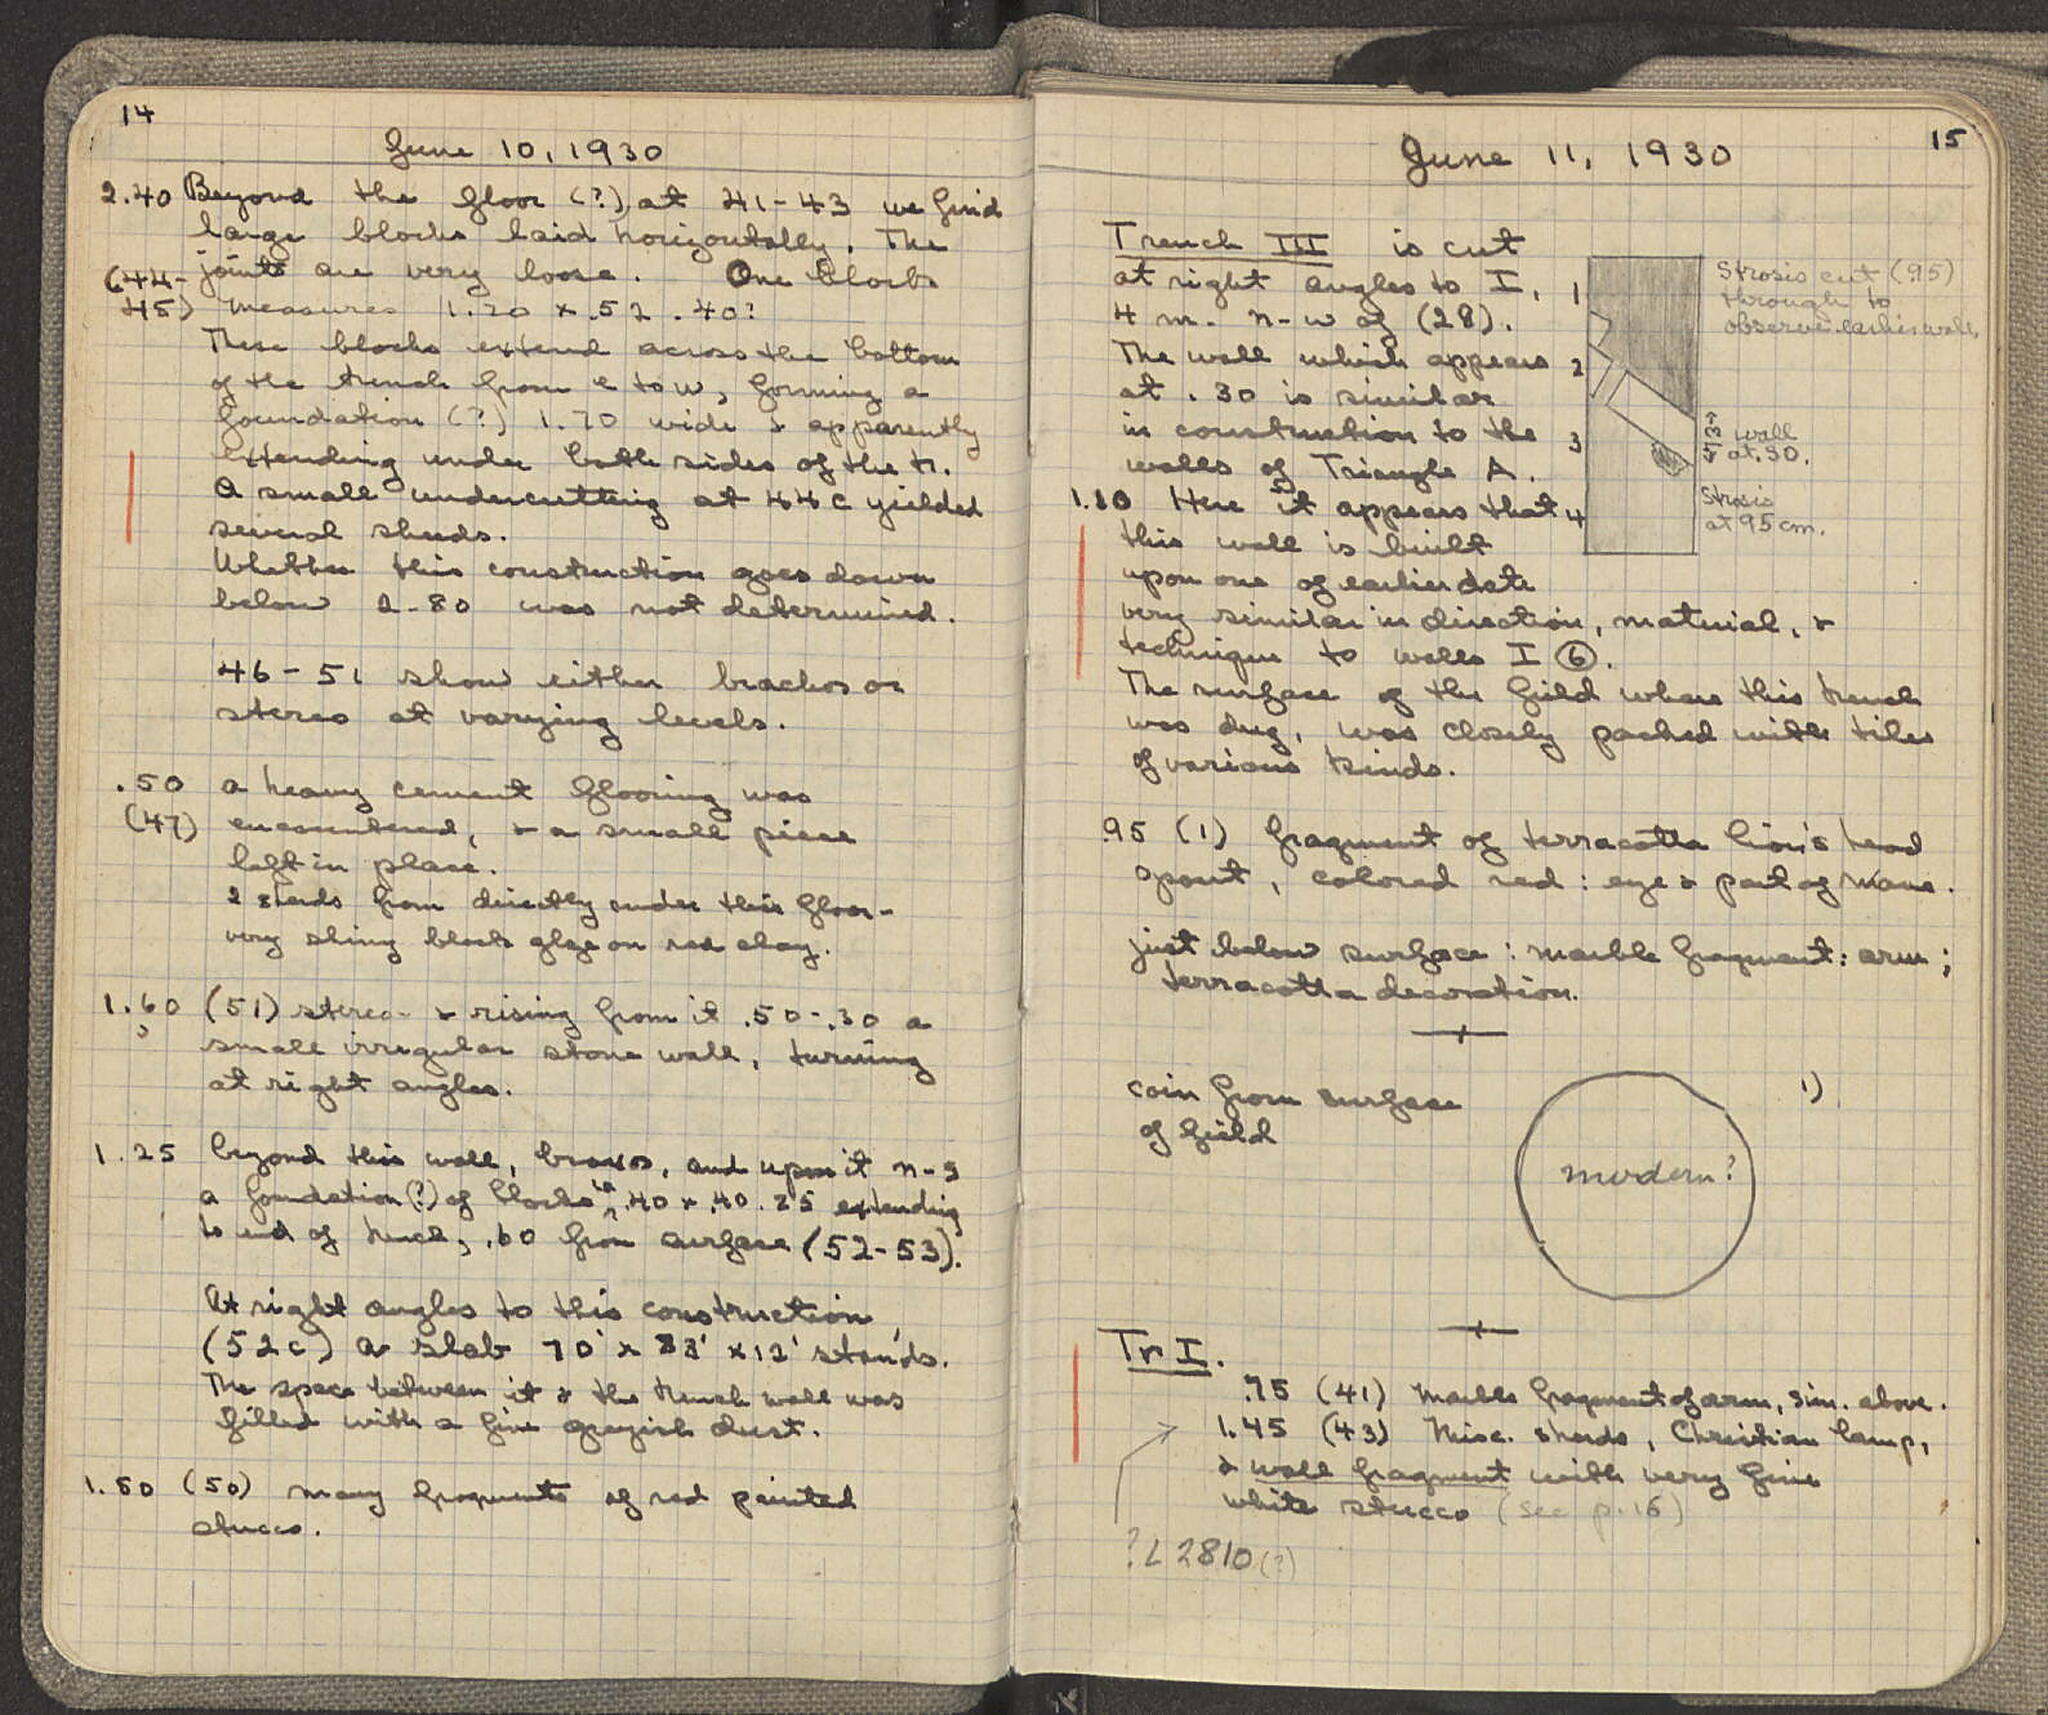 14
June 10, 1930
2.40 Beyond the floor (?) at 41-43 we find
large blocks laid horizontally. The
(44- joints are very loose. One block
45) measures 1.20 x .52 .40?
These blocks extend across the bottom
of the trench from e to w, forming a
foundation (?) 1.70 wide & apparently
extending under both sides of the tr.
A small undercutting at 44c yielded
several sherds.
Whether this construction goes down
below 2.80 was not determined.
46-51 show either brachos or
stereo at varying levels.
.50 a heavy cement flooring was
(47) encountered, & a small piece
left in place.
2 sherds from directly under this floor-
very shiny black glze on red clay.
1.60 (51) stereo- & rising from it .50-.30 a
small irregular stone wall, turning
at right angles.
1.25 beyond this wall, and upon it n-s
a foundation (?) of blocks .40 x .40 .25 extending
to end of trench, .60 from surface (52-53).
At right angles to this construction,
(52c) a slab 70 x x 12 stands.
The space between it & the trench wall was
filled with a fine greyish dust.
1.50 (50) many fragments of red painted
stucco.
15
June 11, 1930
Trench III is cut
at right angles to I,
4 m. n-w of (28).
The wall which appears
at .30 is similar
in construction to the
walls of Triangle A.
1.10 Here it appears that
this wall is built
upon one of earlier date
very similar in direction, material, &
technique to walls I 6.
The surface of the field where this trench
was dug, was closely packed with tiles
of various kinds.
1
2
3
4
Strosis cut (.95)
through to
observe earlier wall
wall
at .30.
Strosis
at 95 cm.
.95 (1) fragment of terracotta lion's head
spout, colored red: eye & part of mane.
just below surface: marble fragment: arm;
terracotta decoration.
coin from surface
of field
modern?
1)
Tr I.
.75 (41) Marble fragment of arm, sim. above.
1.45 (43) Misc. sherds, Christian lamp,
& wall fragment with very fine
white stucco (see p. 16)
? L 2810 (?)